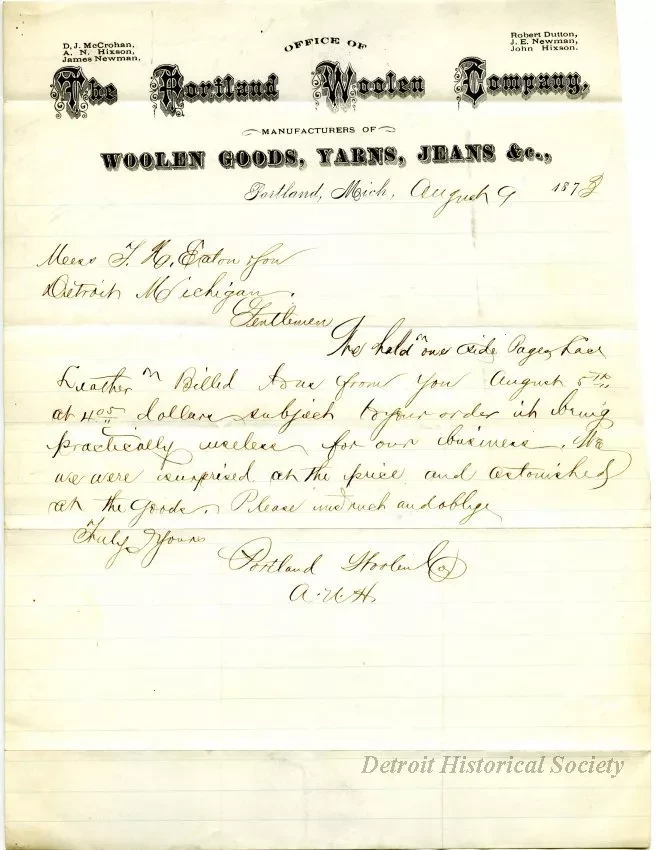 D. J. McCrohan,
A. N. Hixson,
James Newman,
OFFICE OF
Robert Dutton,
J. E. Newman,
John Hixson.
The Portland Woolen Company,
MANUFACTURERS OF
WOOLEN GOODS, YARNS, JEANS &c.,
Portland, Mich, August 9 1873
Mess T. H. Eaton & Son
Detroit Michigan.
Gentlemen
We hold "one side Page, Lace
Leather" Billed to us from you August 5th
at 4.05 dollars subject to your order it being
practically useless for our business. We
we were surprised at the price and astonished
at the Goods. Please instruct and oblige
Truly Yours
Portland Woolen Co
A. N. H.
Detroit Historical Society